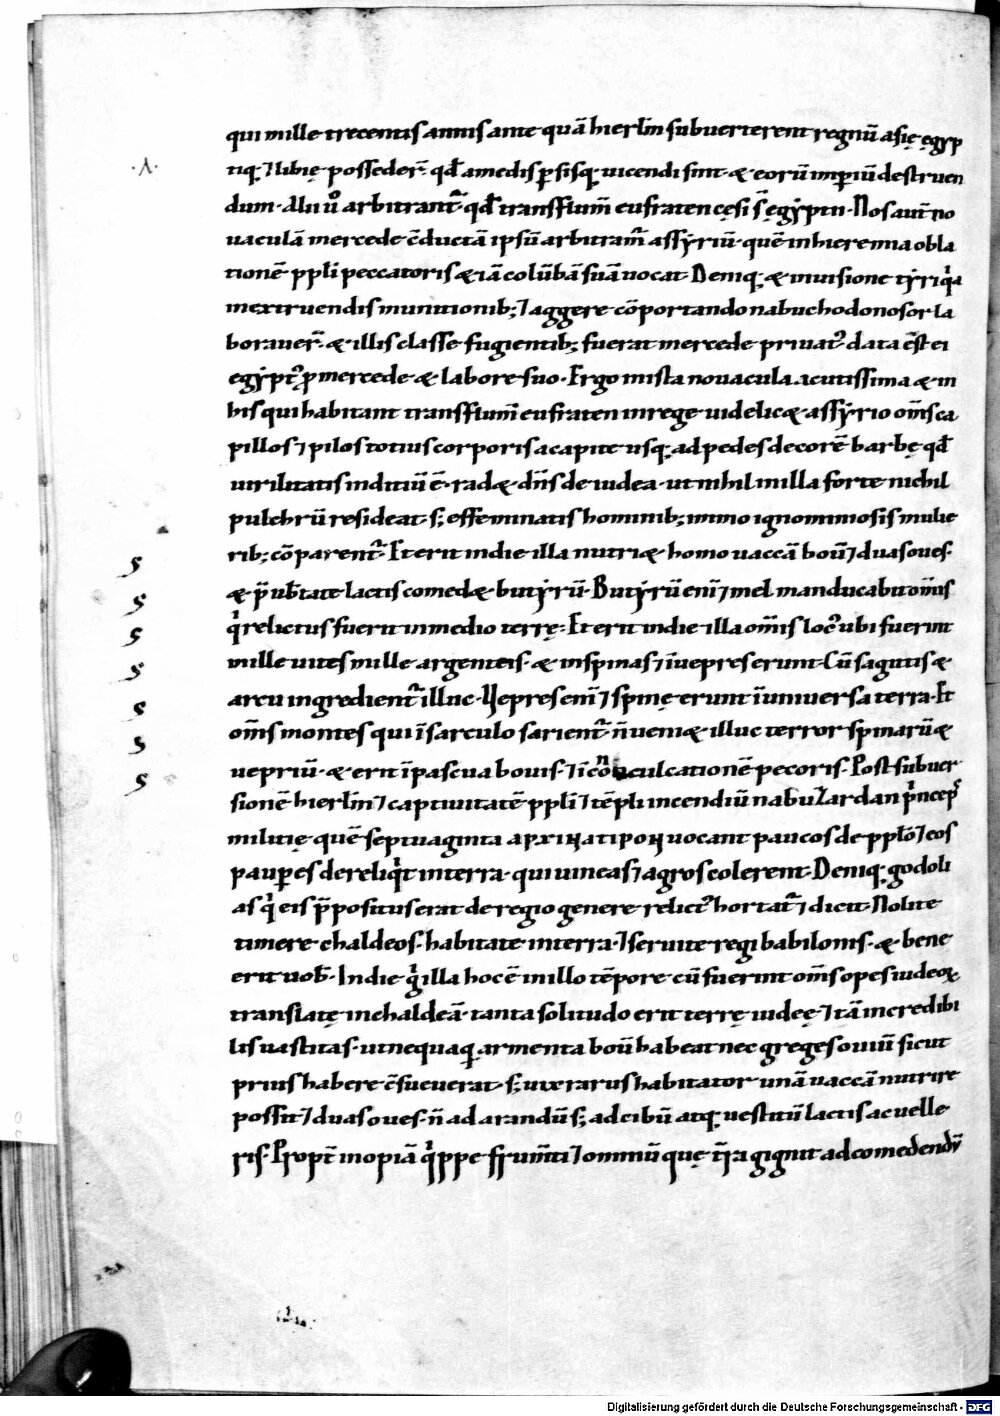 qui mille trecentis annis ante quā hierl̄m subuerterent regnū asię ęgyp
tiq; ⁊ libię possedeŕ. qd̄ a medis ꝑsisq; uicendi sint & eorū imꝑiū destruen
dum. Alii ů arbitrant᷑ qd̄ transflum̄ eufraten cęsi s̄ ęgẏptii. Nos aut̄ no
uaculā mercede c̄ductā ipsū arbitram̄ assẏriū. quē in hieremia obla
tionē ppl̄i peccatoris & iā colūbā suā uocat. Deniq; & in uisione tẏri qͥa
in extruendis munitionib; ⁊ aggere cōportando nabuchodonosor la
borauer̄. & illis classe fugientib; fuerat mercede priuat᷒ data ē st̄ ei
egẏpt᷒ ꝓ mercede & labore suo. Ergo in ista nouacula acutissima & in
his qui habitant transflum̄ eufraten in rege uidelic& assẏrio om̄s ca
pillos ⁊ pilos totius corporis a capite usq; ad pedes decorē barbę qd̄
uirilitatis inditiū ē. rad& dn̄s de iudea. ut nihil in illa forte nichil
pulchrū resideat s; effeminatis hominib; immo ignominiosis mulie
rib; cōparent᷑. Et erit in die illa nutri& homo uaccā boū ⁊ duas oues.
& p̄ ub̄tate lactis comed& butẏrū. Butẏrū eni ⁊ mel manducabit om̄is
qͥ relictus fuerit in medio terrę. Et erit in die illa om̄is loc᷒ ubi fuerint
mille uites mille argenteis. & in spinas ⁊ īuepres erunt. Cū sagittis &
arcu ingredient᷑ illuc. Uepres eni ⁊ spinę erunt ī uniuersa terra. Et
om̄s montes qui ī sarculo sarient᷑ n̄ ueni& illuc terror spinarū &
uepriū. & erit ī pascua bouis. ⁊ ī cōculcationē pecoris. Post subuer
sionē hierl̄m ⁊ captiuitatē ppl̄i ⁊ tēpli incendiū nabuzardan pͥncep̄s
militię quē septuaginta ΑΡΧΙΜΑΓΙΡΟΝ uocant paucos de ppl̄o ⁊ eos
pauꝑes dereliqͥt in terra. qui uineas ⁊ agros colerent. Deniq; godoli
as qͥ eis p̄positus erat de regio genere relict᷒ hortat᷑ ⁊ dicit. Nolite
timere chaldeos. habitate in terra. ⁊ seruite regi babilonis. & bene
erit uob̄. In die gͥ illa hoc ē in illo tēpore cū fuerint om̄s opes iudeoꝝ
translatę in chaldeā. tanta solitudo erit terrę iudeę ⁊ tā incredibi
lis uastitas. ut nequaqͣ armenta boū habeat nec greges ouiū sicut
prius habere c̄sueuerat. s; uix rarus habitator unā uaccā nutrire
possit ⁊ duas oues. n̄ ad arandū s; ad cibū atq; uestitū lactis ac uelle
ris. Propt̄ inopiā qͥppe frum̄ti ⁊ omniū quę t̄ra gignit ad comedendū